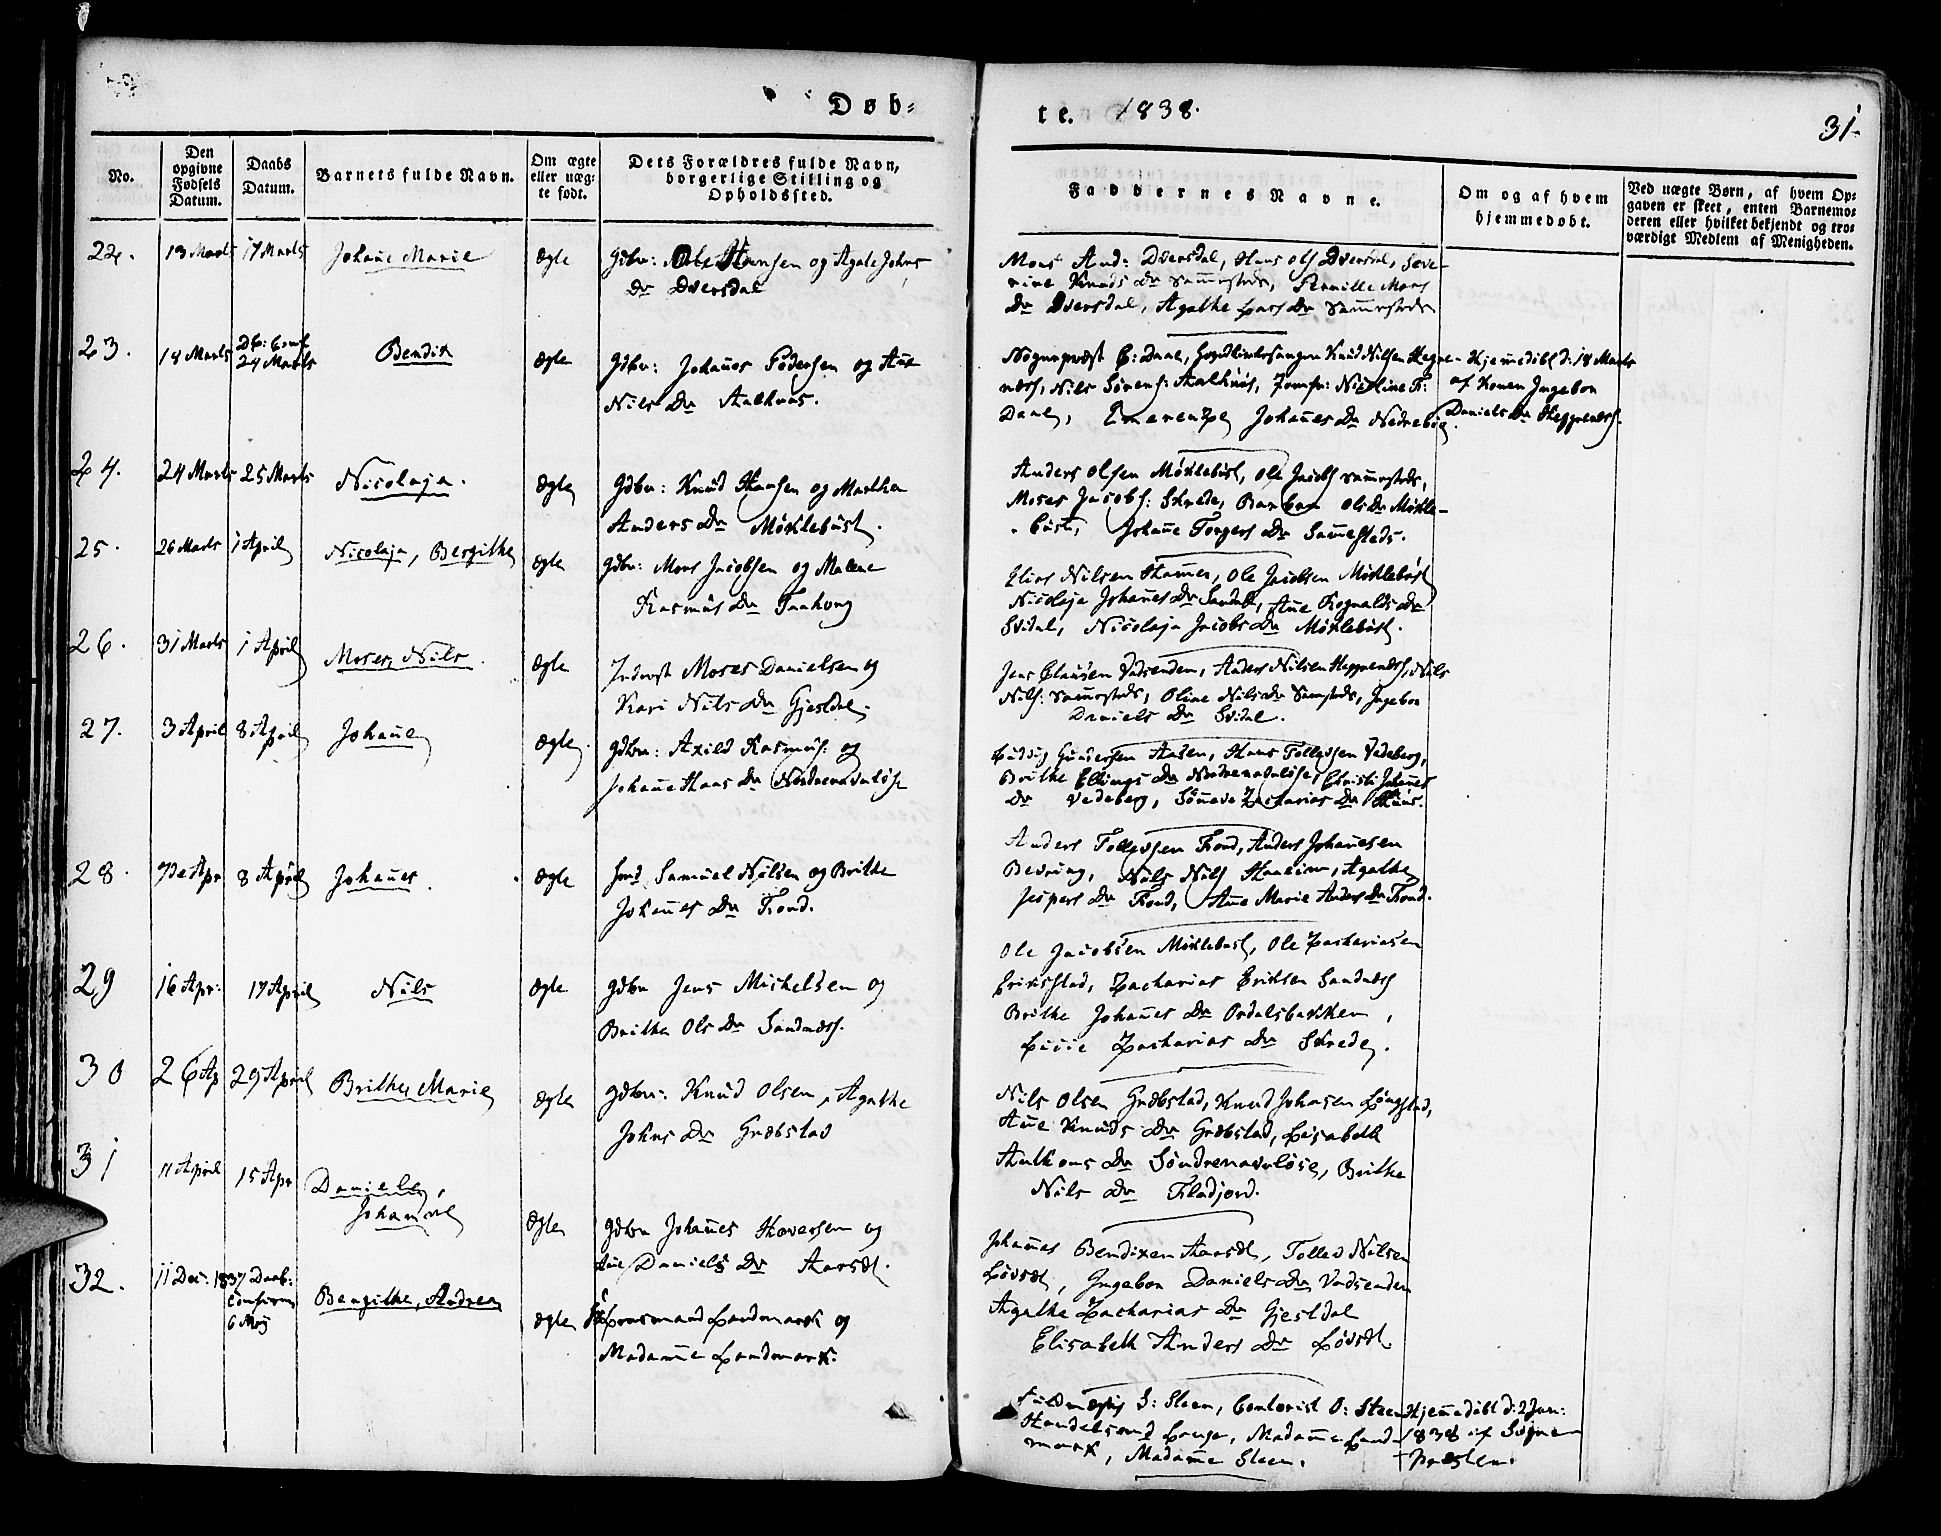 Døb=
te. 1838.
31.
No.
Den opgivne Fødsels Datum.
Daabs Datum.
Barnets fulde Navn.
Om ægte eller uæg= te født.
Dets Forældres fulde Navn, borgerlige Stilling og Opholdssted.
Faddernes Navne.
Om og af hvem hjemmedøbt.
Ved uægte Børn, af hvem Op= gaven er skeet, enten Barnemo= deren eller hvilket bekjendt og tro= værdigt Medlem af Menigheden.
22. 13 Marts 17 Marts Johañe Marie Ægte Gdbr: Ole Hansen og Agate Johns
Dr Dversdal
Mons And: Dversdal, Hans Ols Dversdal, Seve-
rine Knuds Dr sammesteds, Pernille Mons
Dr Dversdal, Agathe Lars Dr sammesteds
23. 18 Marts Db: Conf. 24 Marts Bendix Ægte Gdbr: Johañes Pedersen og Añe
Nils Dr Aalhuus.
Sognepræst C: Daae, Knud Nilsen Hegre-
næss, Nils Sørens: Aalhuus, Jomfr: Nicoline Fr:
Daae, Emerentze Johañes Dr Nedrebøe.
Hjemmedøbt d: 18 Marts
af Konen Ingebor
Daniels Dr Heggrenæss.
24. 24 Marts 25 Marts Nicolaja. Ægte Gdbr: Knud Hansen og Marthe
Anders Dr Myklebust.
Anders Olsen Myklebust, Ole Jacobs sammesteds,
Moses Jacobs: Skrede, Barbra Ols Dr Mykle-
bust, Johañe Torgers Dr Sammesteds.
25. 26 Marts 1 April Nicolaja, Bergithe Ægte Gdbr: Mons Jacobsen og Malene
Rasmus Dr Taahoug
Elias Nilsen Hamer, Ole Jacobsen Myklebust
Nicolaja Johañes Dr Sandal, Añe Rognalds Dr
Svidal, Nicolaja Jacobs Dr Myklebust.
26. 31 Marts 1 April Moses Nils. Ægte Inderst Moses Danielsen og
Kari Nils Dr Gjesdal.
Jens Clausen Vadsenden, Anders Nilsen Heggrenæss, Nils
Nils: sammesteds, Oline Nils Dr Samesteds, Ingebor
Daniels Dr Svidal.
27. 3 April 8 April Johañe Ægte. Gdbr: Axild Rasmus: og
Johañe Hans Dr Nordrenavuløse
Ludvig Gundersen Aasen, Hans Tollevsen Vedeberg,
Brithe Ellings Dr Nordrenavuløse, Christi Johañes
Dr Vedeberg, Sønneve Zacharias Dr Huus.
28. 7de Apr 8 April Johañes. Ægte Samuel Nilsen og Brithe
Johañes Dr Fond.
Anders Tollevsen Fond, Anders Johañesen
Bevring, Nils Nils Haaheim, Agathe
Jespers Dr Fond, Añe Marie Anders Dr Fond.
29 16 Apr: 17 April Nils Ægte Gdbr Jens Michelsen og
Brithe Ols Dr Sandnæss.
Ole Jacobsen Myklebust, Ole Zachariasen
Eriksstad, Zacharias Eriksen Sandnæss
Brithe Johañes Dr Ordalsbakken,
Lucie Zacharias Dr Skrede.
30 26 Ap 29 April Brithe Marie Ægte Gdbr: Knud Olsen, Agathe
Johns Dr Græbstad
Nils Olsen Græbstad, Knud Johnsen
Añe Knuds Dr Græbstad, Lisabeth
Anthons Dr Søndrenavuløse, Brithe
Nils Dr Fladjord.
31 11 April 15 Apr Daniele, Johañe Ægte Gdbr Johañes Haversen og
Añe Daniels Dr Aarsdt.
Johañes Bendixen Aarsdt, Tollev Nilsen
Løvsdt, Ingebor Daniels Dr Vadsenden
Agathe Zacharias Dr Gjesdal
Elisabeth Anders Dr Løvsdt.
32. 11 Dec: 1837 Daab: Confirm 6 Maj Bergithe, Andrea Ægte Landmark og
Madamme Landmark.
Fuldmægtig S: Steen, Contorist O: Steen
Handelsmd Lange, Madamme Land-
mark, Madamme Steen.
Hjemmedøbt d: 2 Jan:
1838 af Sogne
Præsten.